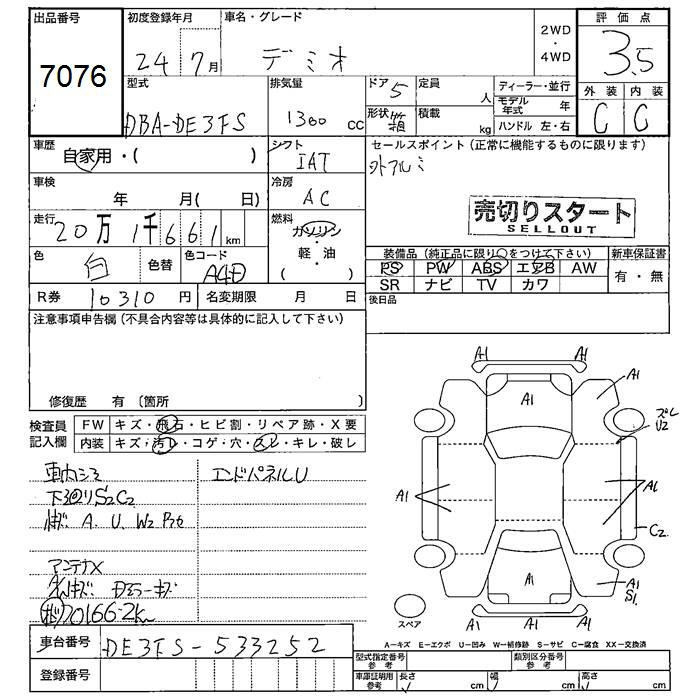 出品番号
7076
初度登録年月
24 7月
車名・グレード
デミオ
2WD
・
4WD
評価点
3.5
外装 内装
C C
型式
DBA-DE3FS
排気量
1300 cc
ドア 5
形状 箱
定員 人
積載 kg
ディーラー・並行
モデル年式 年
ハンドル 左・右
車歴
自家用・( )
シフト
IAT
セールスポイント(正常に機能するものに限ります)
外アルミ
売切りスタート
SELLOUT
車検
年 月( 日)
冷房
AC
走行
20万1千661km
燃料
ガソリン
軽・油
( )
色
白
色替
色コード
A4D
装備品(純正品に限り○をつけて下さい)
PS PW ABS エアB AW
SR ナビ TV カワ
新車保証書
有・無
R券 10310円
名変期限 月 日
後日品
注意事項申告欄(不具合内容等は具体的に記入して下さい)
修復歴 有(箇所 )
検査員記入欄
FW キズ・飛石・ヒビ割・リペア跡・X要
内装 キズ・汚レ・コゲ・穴・スレ・キレ・破レ
エンドパネルU
下回りS2C2
A. U. W2
アンテナX
A1 A1
A1 A1
ズレ
U2
A1 A1
C2
A1 A1
S1
スペア
A1 A1
A-キズ E-エクボ U-凹み W-補修跡 S-サビ C-腐食 XX-交換済
車台番号 DE3FS-533252
登録番号
型式指定番号参考
類別区分番号参考
車庫証明用参考
長さ cm 幅 cm 高さ cm